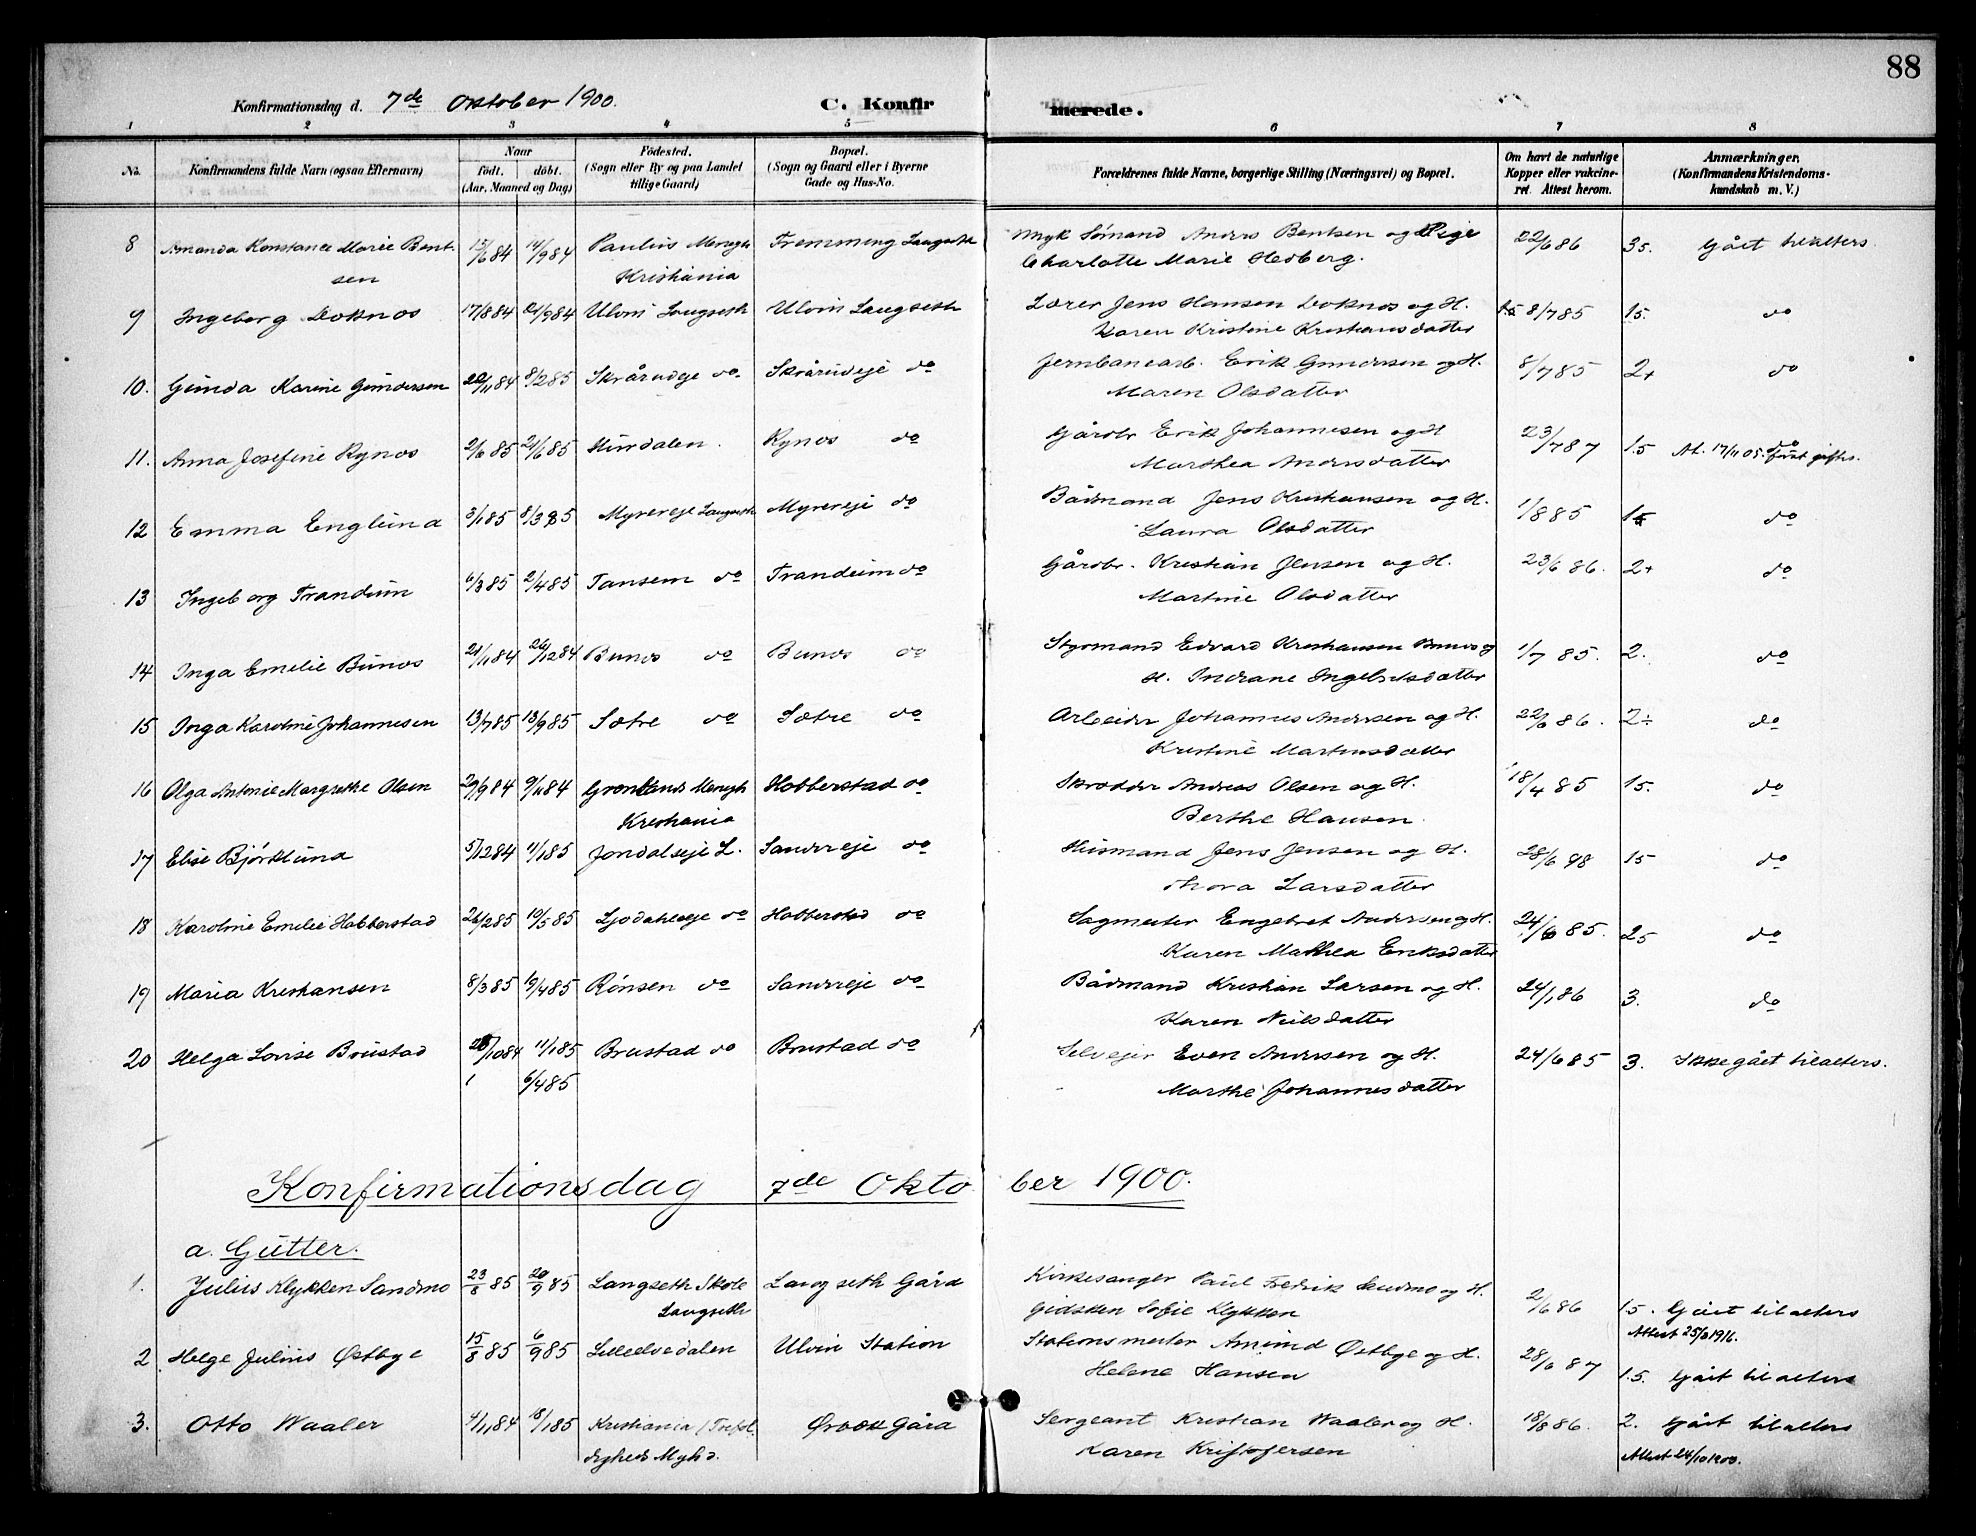 88
Konfirmationsdag d. 7de Oktober 1900. C. Konfirmerede.
1 2 3 4 5 6 7 8
No. Konfirmandens fulde Navn (ogsaa Efternavn) Naar født. døbt. (Aar, Maaned og Dag) Fødested. (Sogn eller By og paa Landet tillige Gaard) Bopæl. (Sogn og Gaard eller i Byerne Gade og Hus-No. Forældrenes fulde Navne, borgerlige Stilling (Næringsvei) og Bopæl. Om havt de naturlige Kopper eller vakcineret. Attest herom. Anmærkninger, (Konfirmandens Kristendomskundskab m. V.)
8 Amanda Konstance Marie Bent- 15/6 84 14/9 84 Paulus Menigh Fremming Langseth Ungk Sømand Anders Bentsen og Pige 22/6 86 3,5. Gået tilalters
sen Kristiania Charlotte Marie Hedberg.
9 Ingeborg Doknos 17/8 84 21/9 84 Ulvin Langseth Ulvin Langseth Lærer Jens Hansen Doknos og H. 8/7 85 1.5. do
Karen Kristine Kristiansdatter
10. Gunda Karine Gundersen 20/11 84 8/2 85 Skrårudeje do Skrårudeje do Jernbanearb. Erik Gundersen og H. 8/7 85 2+ do
Maren Olsdatter
11. Anna Josefine Rynos 2/6 85 21/6 85 Hurdalen. Rynos do Gårdbr Erik Johannesen og H 23/7 87 1.5 At. 17/11 05. do
Marthea Andersdatter
12 Emma Englund 3/1 85 8/3 85 Myrereje Langseth Myrereje do Bådmand Jens Kristiansen og H. 1/8 85 15 do
Laura Olsdatter
13 Ingeborg Trandum 6/3 85 2/4 85 Tansem do Trandum do Gårdbr. Kristian Jensen og H. 23/6 86. 2+ do
Martine Olsdatter
14 Inga Emelie Bunos 21/11 84 26/12 84 Bunos do Bunos do Styrmand Edvard Kristiansen Bunos og 1/7 85. 2. do
H. Indiane Ingebretsdatter
15 Inga Karoline Johannesen 13/7 85 13/9 85 Sætre do Sætre do Arbeider Johannes Andersen og H. 22/6 86. 2÷ do
Kristine Martinusdatter
16 Olga Antonie Margrethe Olsen 29/9 84 9/11 84 Grønlands Menigh Hobberstad do Skrædder Andreas Olsen og H. 18/4 85 1.5. do
Kristiania Berthe Hansen.
17 Elise Bjørklund 5/12 84 11/1 85 Jondalseje L. Sandereje do Husmand Jens Jensen og H. 28/6 98 1.5 do
Thora Larsdatter
18 Karoline Emilie Hobberstad 26/2 85 10/5 85 Ljødahleje do Hobberstad do Sagmester Engebret Andersen og H. 24/6 85. 2.5 do
Karen Mathea Eriksdatter
19 Maria Kristiansen 8/3 85 19/4 85 Rønsen do Sandereje do Bådmand Kristian Larsen og H. 24/1 86 3. do
Karen Nilsdatter
20 Helga Lovise Brustad 28/10 84 11/1 85 Brustad do Brustad do Selvejer Even Andersen og H. 24/6 85 3. Ikke gået tilalters.
6/4 85 Marthe Johannesdatter
Konfirmationsdag 7de Oktober 1900.
a. Gutter.
1. Julius Klykken Sandmo 23/8 85 20/9 85 Langseth Skole Langseth Gård Kirkesanger Paul Fredrik Sandmo og H. 2/6 86 1.5. Gået til alters
Langseth Gidsken Sofie Klykken Attest 25/6 1916.
2 Helge Julius Østbye 15/8 85 6/9 85 Lilleelvedalen Ulvin Station Stationsmester Amund Østbye og H. 28/6 87 1.5. Gået til alters
Helene Hansen
3. Otto Waaler 4/11 84 18/1 85 Kristiania (Trefol- Ørbæk Gård Sergeant Kristian Waaler og H. 18/8 86. 2. Gået tilalters
digheds Mghd. Karen Kristofersen Attest 24/10 1900.